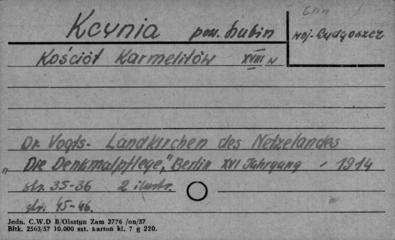 Kcynia pow. Szubin
woj. Bydgoszcz
Kościół Karmelitów XVIII w
Dr. Vogts - Landkirchen des Netzelandes
„Die Denkmalpflege," Berlin XVI Jahrgang , 1914
str. 35-36 2 ilustr.
str. 45-46.
Jedn. C.W.D B/Olsztyn Zam 2776 /on/57
Bltk. 2563/57 10.000 szt. karton kl. 7 g 220.